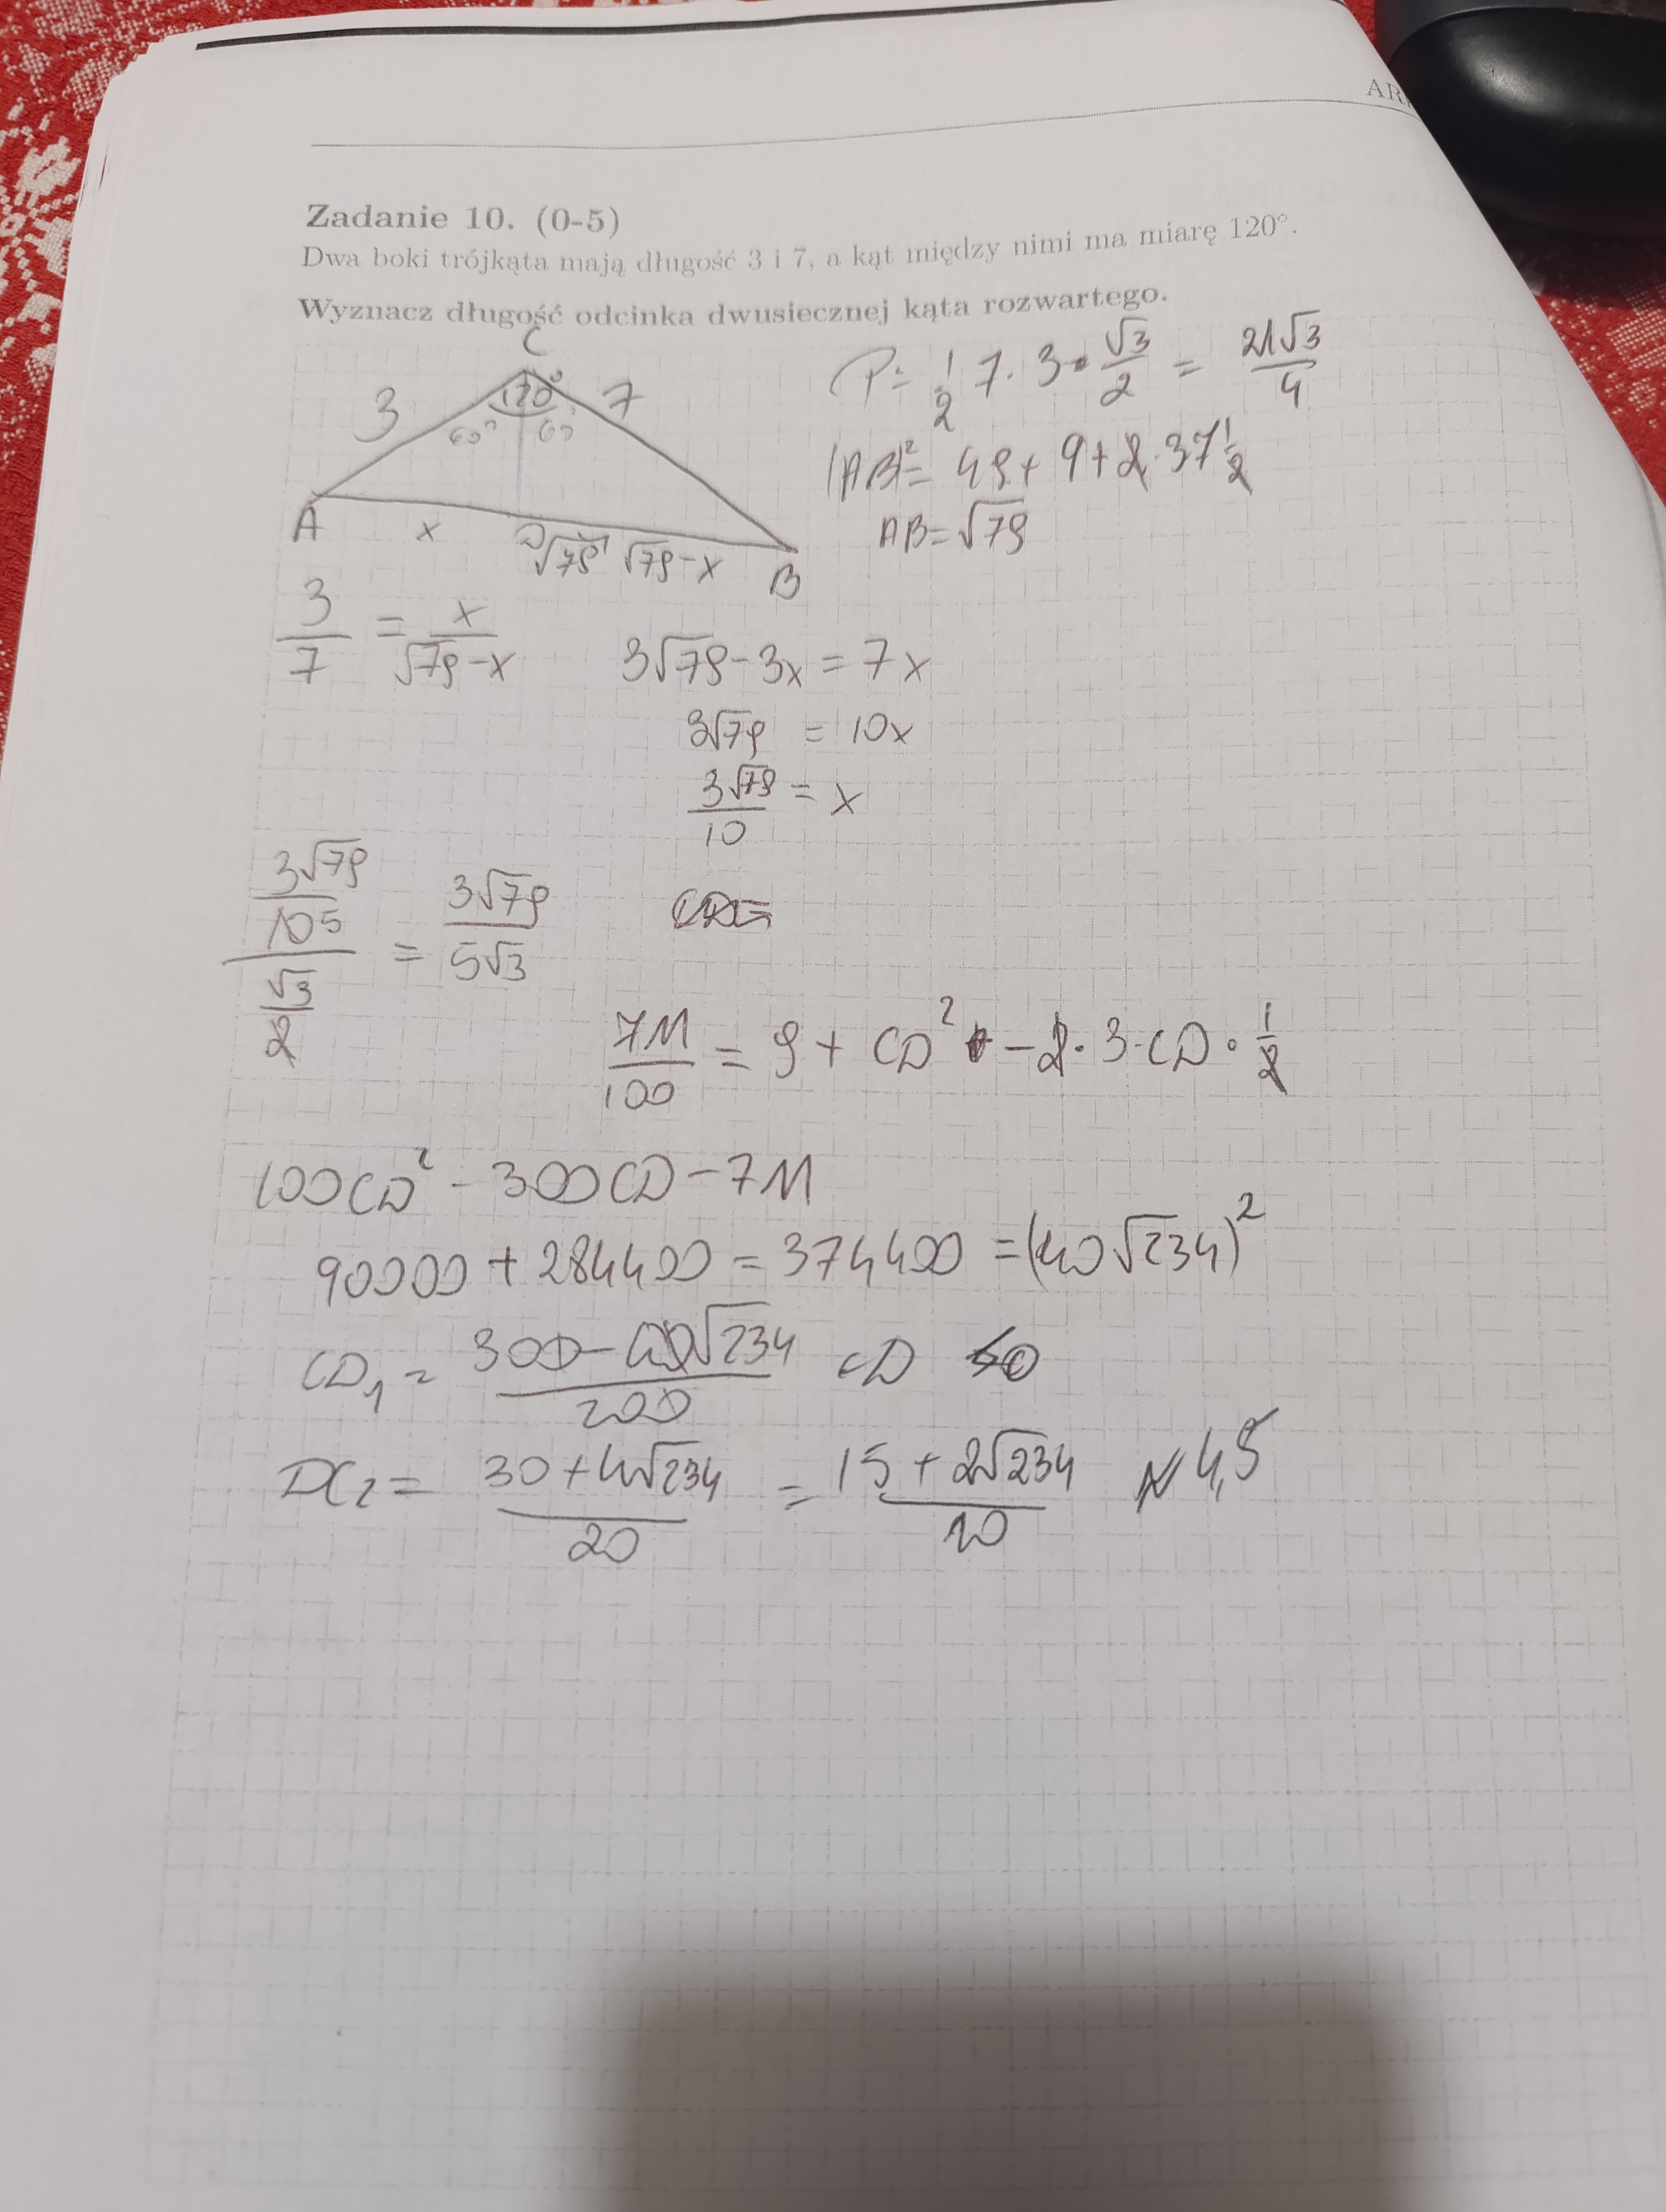 Zadanie 10. (0-5)
Dwa boki trójkąta mają długość 3 i 7, a kąt między nimi ma miarę 120°.
Wyznacz długość odcinka dwusiecznej kąta rozwartego.
C
3 120° 7
60° 60
A x D √79 √79-x B
P = 1/2 7 · 3 · √3/2 = 21√3/4
|AB|² = 49 + 9 + 2 · 37 1/2
AB = √79
3/7 = x/(√79-x)
3√79 - 3x = 7x
3√79 = 10x
3√79/10 = x
(3√79/10 5)/(√3/2) = 3√79/5√3
CD=
711/100 = 9 + CD² - 2 · 3 · CD · 1/2
100CD² - 300CD - 711
90000 + 284400 = 374400 = (40√234)²
CD₁ = (300 - 40√234)/200 CD <0
DC₂ = (30 + 4√234)/20 = (15 + 2√234)/10 ≈ 4,5